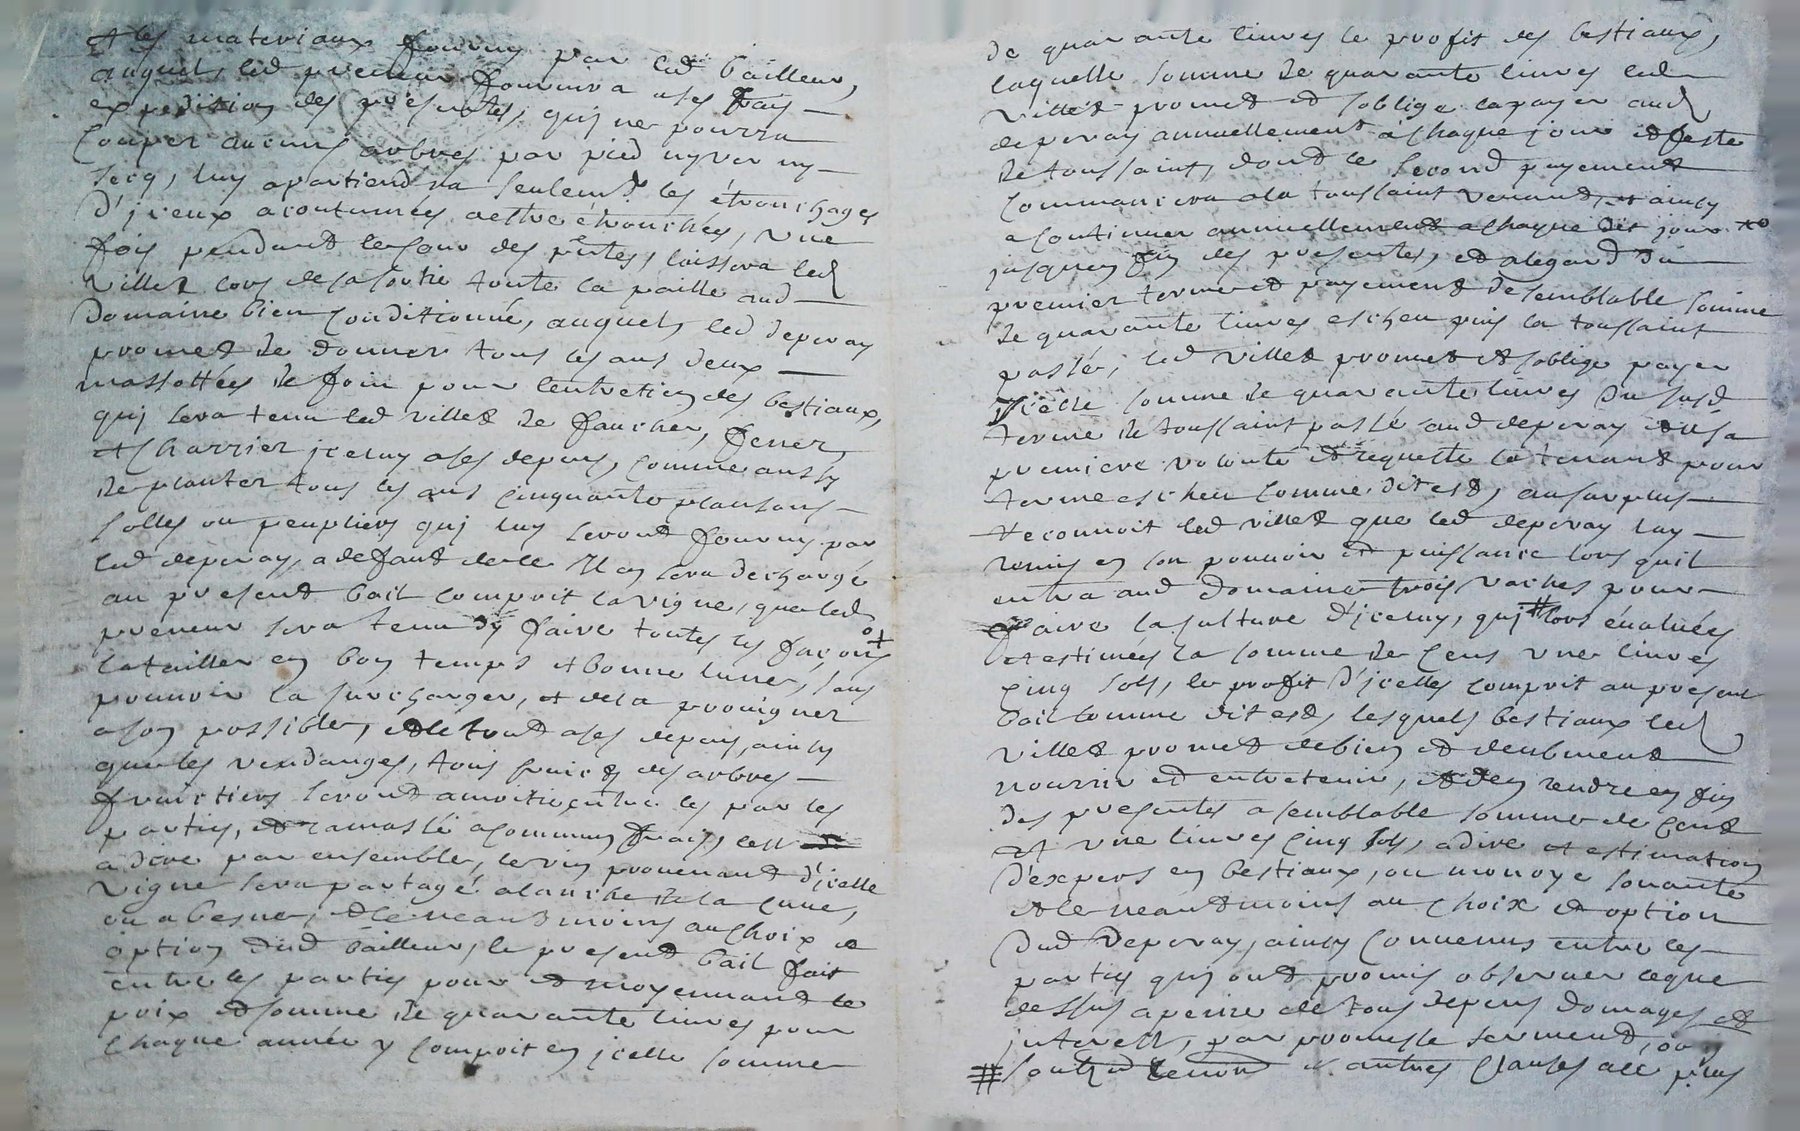 et les materiaux fournis par led bailleur,
auquel, led preneur fournira a ses frais
expedition des presentes, quj ne pourra
couper aucuns arbres par pied ny ver ny
secq, luy apartiendra seulemt les étronchages
d'jceux acoutumés aetre étronchés, une
fois pendant le cour des pntes, laissera led
Villet lors de sa sortie toute la paille aud
Domaine bien conditionné, auquel, led deperay
promet de donner tous les ans deux
massottées de foin pour lentretien des bestiaux,
quj sera tenu led villet de faucher, fener
et charrier jceluy a ses depens, comme aussy
de planter tous les ans cinquante plansons
solles ou peupliers quj luy seront fournis par
led deperay, a defaut de ce Il en sera dechargé
au present bail comprit la vigne, que led
preneur sera tenu dy faire toutes les façons
la tailler en bon temps et bonne lune, sans
pouvoir la surcharger, et de la provigner
a son possible, et le tout a ses depens, ainsy
que les vendanges, tous fruicts des arbres
fruictiers seront a moitie entre les par les
parties, et ramassé a commun frais, cest
a dire par ensemble, le vin provenant d'jcelle
vigne sera partagé a lanche de la cuve,
ou a besne, et le neantmoins au choix et
option dud bailleur, le present bail fait
entre les parties pour et moyennant le
prix et somme de quarante livres pour
chaque année y comprit en jcelle somme
de quarante livres le profit des bestiaux,
laquelle somme de quarante livres led
Villet promet et soblige la payer aud
deperay annuellement a chaque jour et feste
de toussaint, dont le second payement
commancera a la toussaint venant, et ainsy
a continuer annuellement a chaque dit jour
jusquen fin des presentes, et a legard du
premier terme et payement de semblable somme
de quarante livres escheu puis la toussaint
passée, led villet promet et soblige payer
jcelle somme de quarante livres du susd
terme de toussaint passé aud deperay et a sa
premiere volonté et requette le tenant pour
terme escheu comme dit est, au surplus
reconnoit led villet que led deperay luy
remis en son pouvoir et puissance lors quil
entra aud domaine trois vaches pour
faire la culture d'jceluy, quj # lors évaluées
et estimées la somme de cent une livres
cinq sols, le profit d'jcelles comprit au present
bail comme dit est, lesquels bestiaux led
villet promet de bien et deubment
nourrir et entretenir, et den rendre en fin
des presentes a semblable somme de cent
et une livres cinq sols, a dire et estimation
d'expers en bestiaux, ou monoye sonante
et le neantmoins au choix et option
dud Deperay, ainsy convenus entre les
parties quj ont promis observer ce que
dessus a peine de tous depens domages et
jnterest, par promesse serment,
# autres clauses